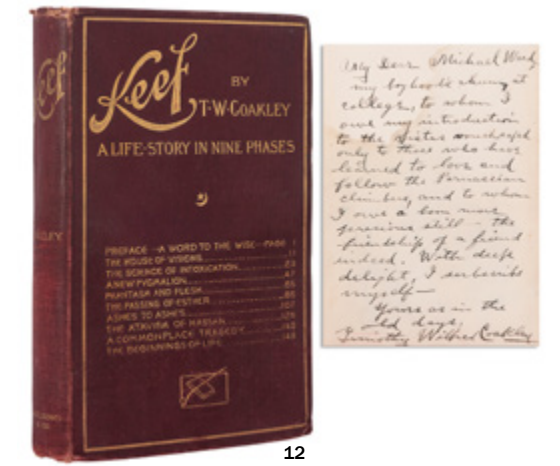 Keef
BY
T·W·COAKLEY
A LIFE-STORY IN NINE PHASES
PREFACE—A WORD TO THE WISE—PAGE 1
THE HOUSE OF VISIONS 11
THE SCIENCE OF INTOXICATION
A NEW PYGMALION
PHANTASM AND FLESH
THE PASSING OF ESTHER
ASHES TO ASHES
THE ATAVISM OF HASSAN
A COMMONPLACE TRAGEDY
THE BEGINNINGS OF LIFE
Keef
My Dear Michael Ward,
my boyhood's chum at
college, to whom I
owe my introduction
to the vistas vouchsafed
only to those who have
learned to love and
follow the Parnassian
climbers, and to whom
I owe a boon more
precious still — the
friendship of a friend
indeed. With deep
delight, I subscribe
myself—
Yours as in the
old days,
Timothy Wilfred Coakley
12